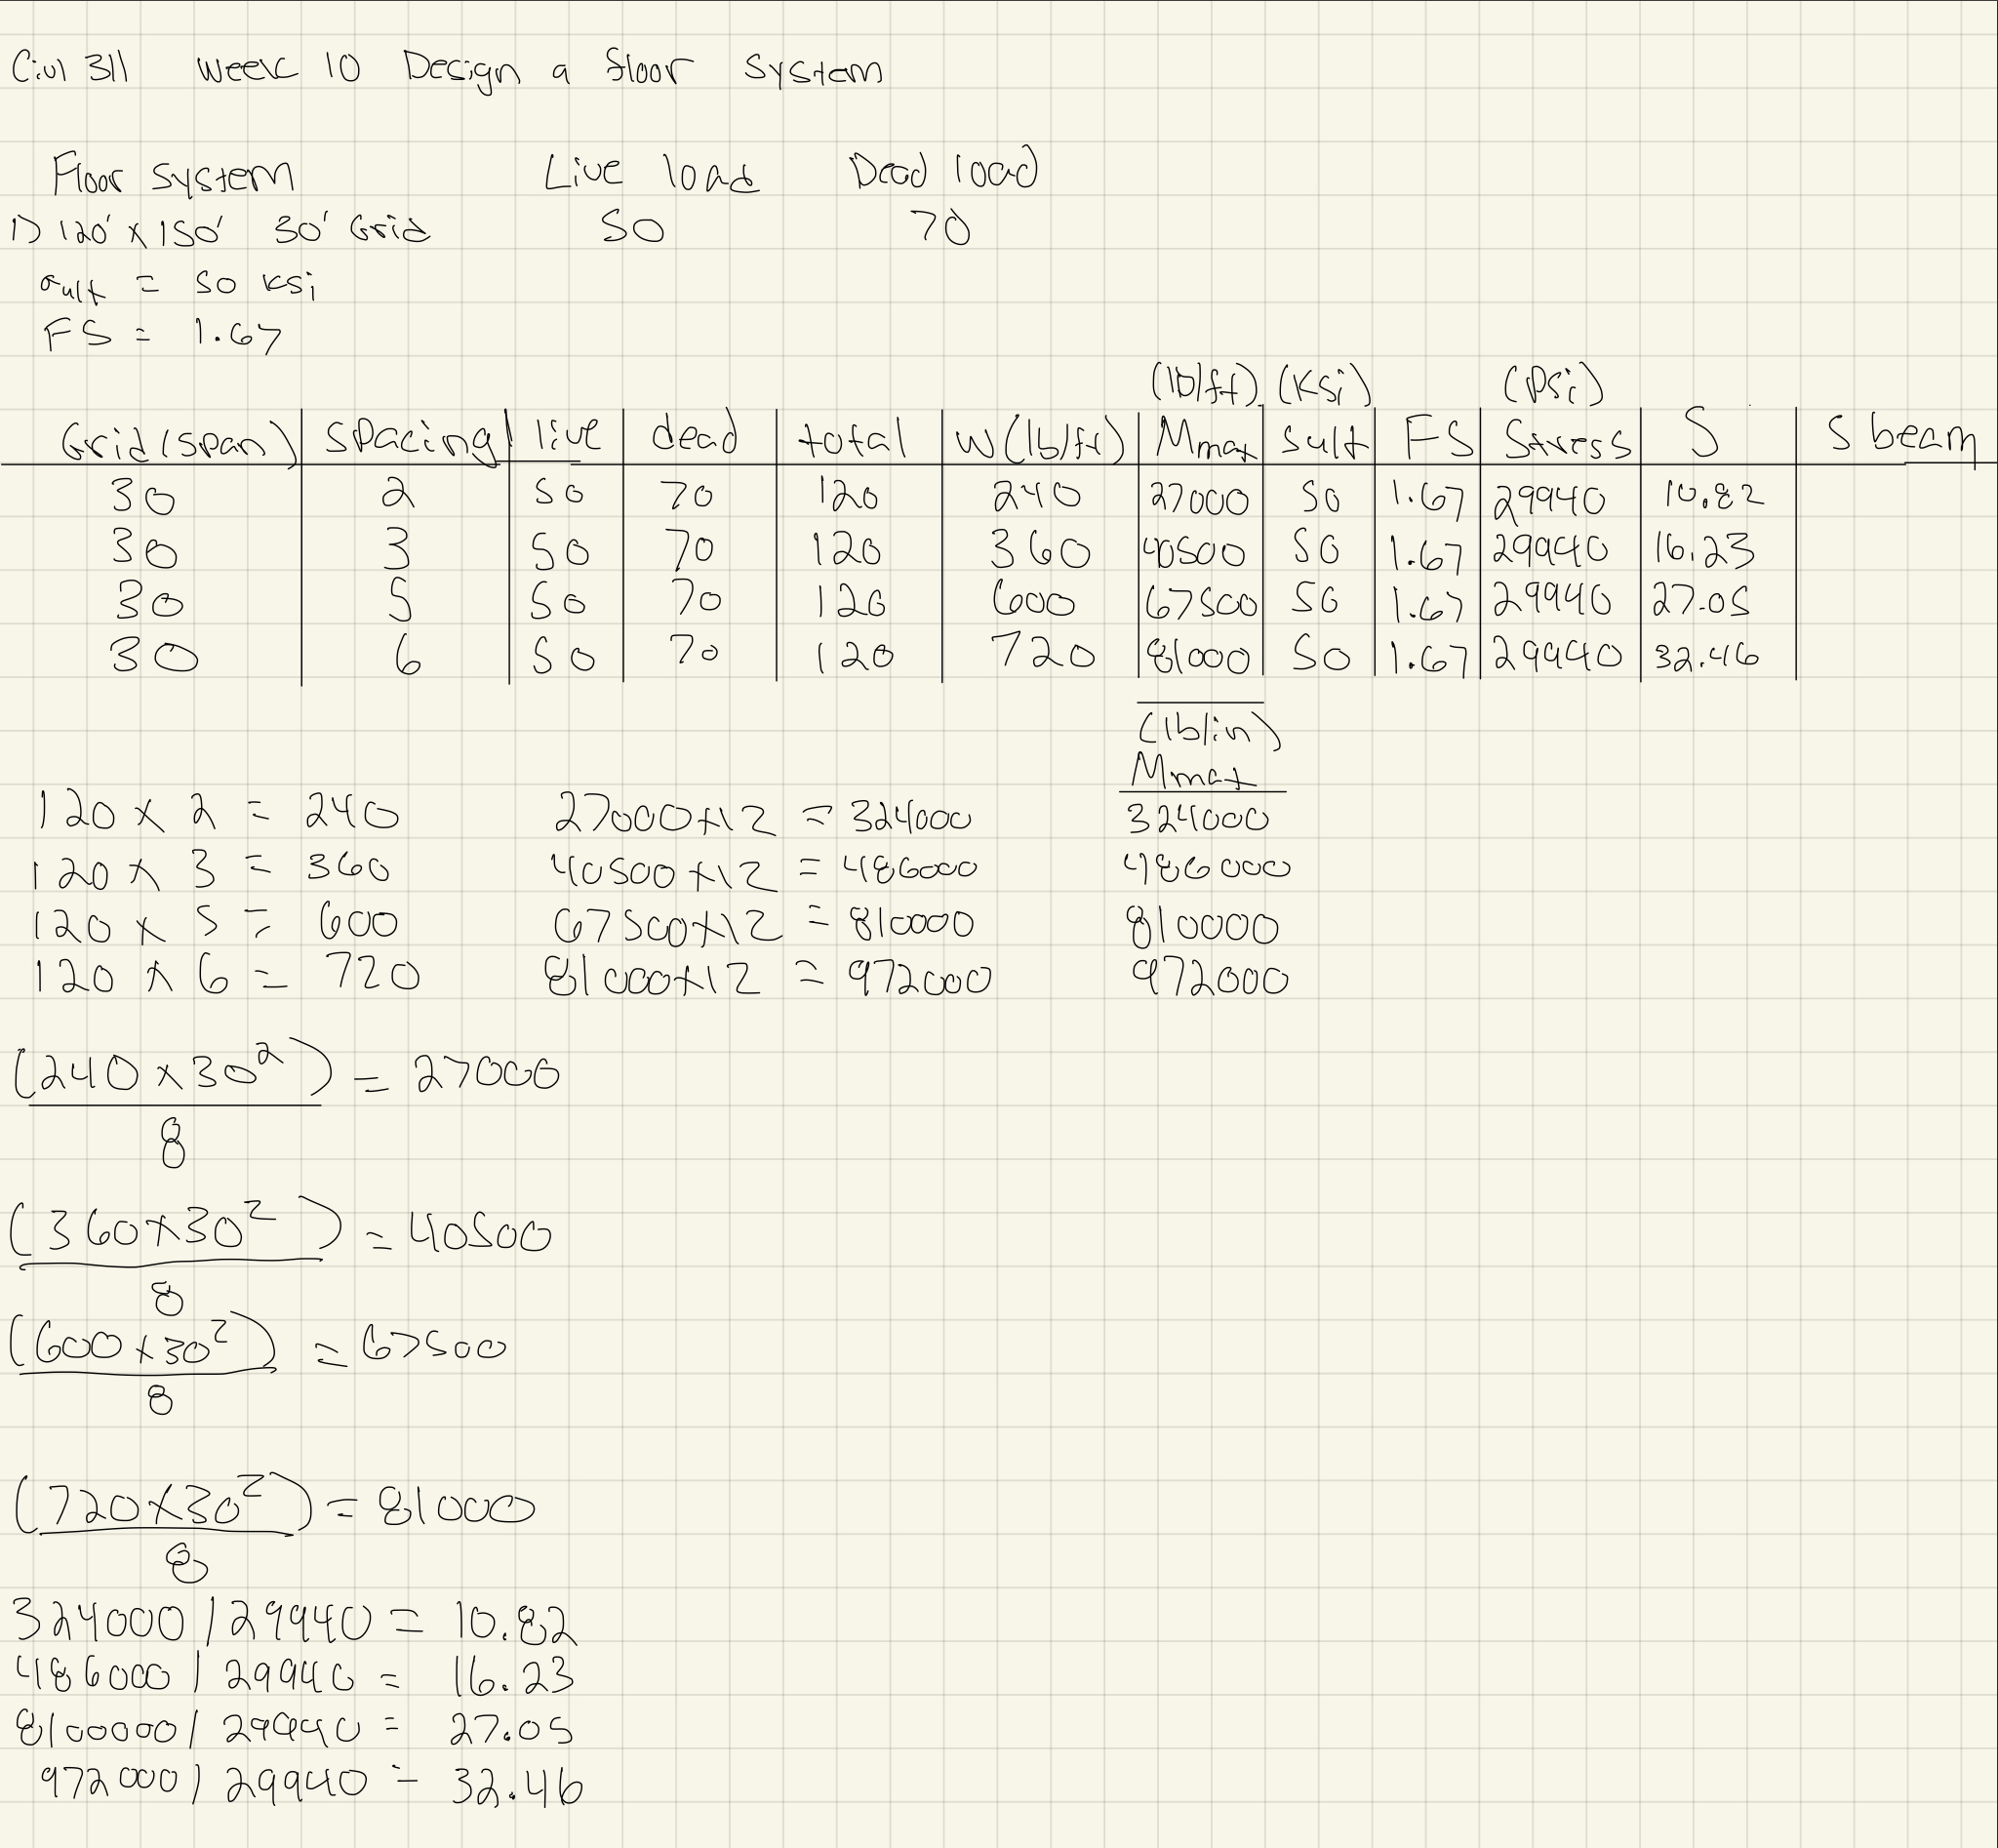 Civil 311 Week 10 Design a floor system
Floor system Live load Dead load
1) 120' x 150' 30' Grid 50 70
σult = 50 ksi
FS = 1.67
(lb/ft) (Ksi) (Psi)
Grid (span) Spacing live dead total w (lb/ft) Mmax Sult FS Stress S S beam
30 2 50 70 120 240 27000 50 1.67 29940 10.82
30 3 50 70 120 360 40500 50 1.67 29940 16.23
30 5 50 70 120 600 67500 50 1.67 29940 27.05
30 6 50 70 120 720 81000 50 1.67 29940 32.46
(lb/in)
Mmax
120 x 2 = 240 27000x12 = 324000 324000
120 x 3 = 360 40500x12 = 486000 486000
120 x 5 = 600 67500x12 = 810000 810000
120 x 6 = 720 81000x12 = 972000 972000
(240 x 30²) = 27000
8
(360 x 30²) = 40500
8
(600 x 30²) = 67500
8
(720 x 30²) = 81000
8
324000 / 29940 = 10.82
486000 / 29940 = 16.23
8100000 / 29940 = 27.05
972000 / 29940 = 32.46